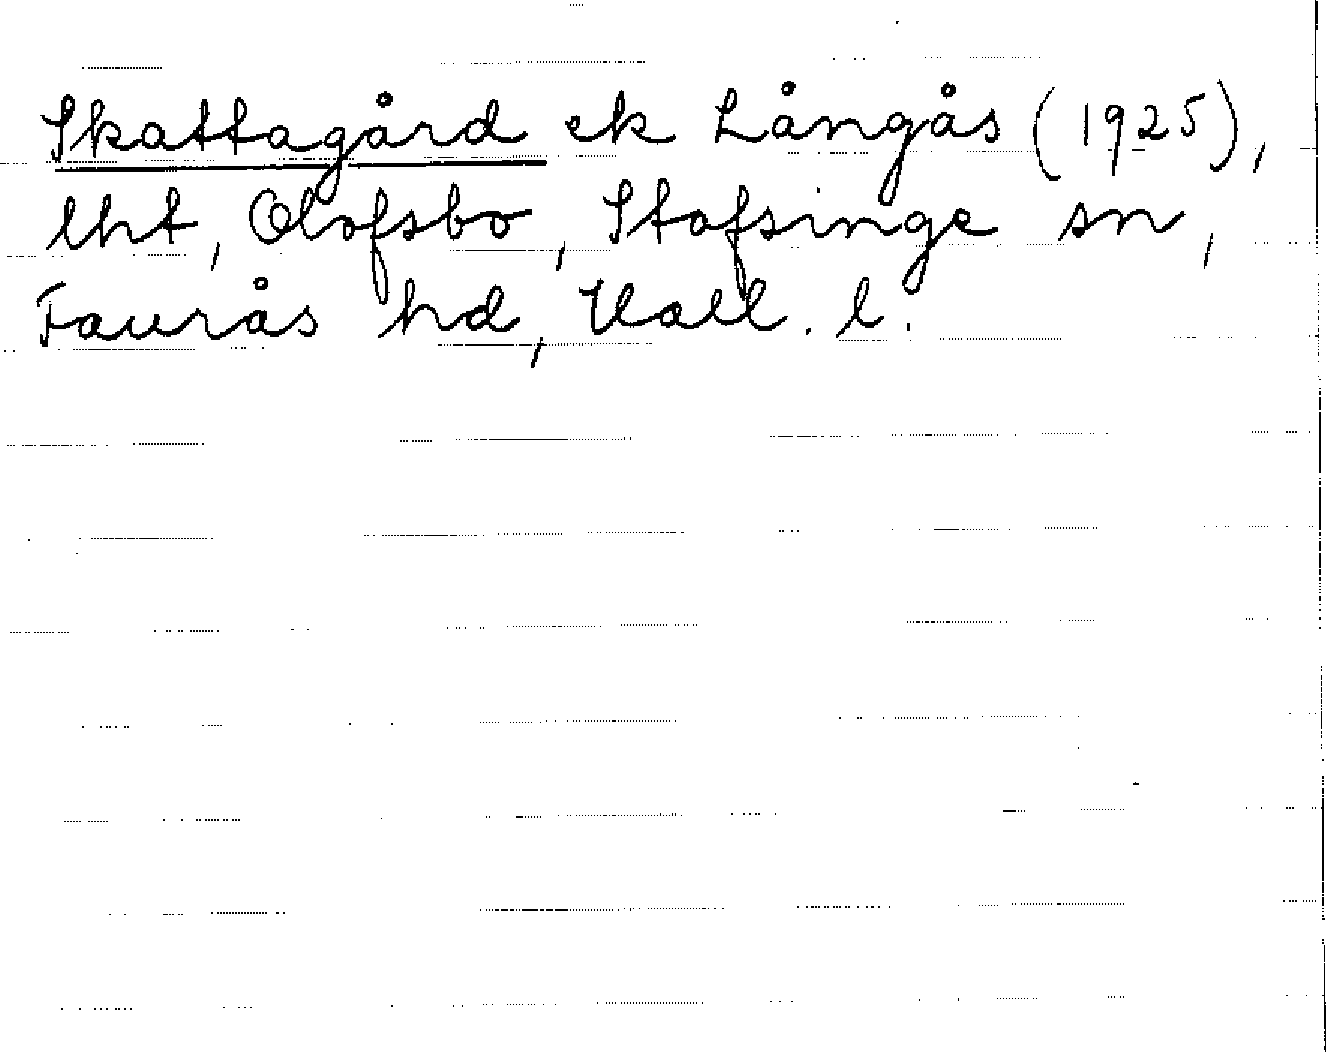 Skattagård ek Långås (1925),
lht, Olofsbo, Stafsinge sn,
Faurås hd, Hall. l.